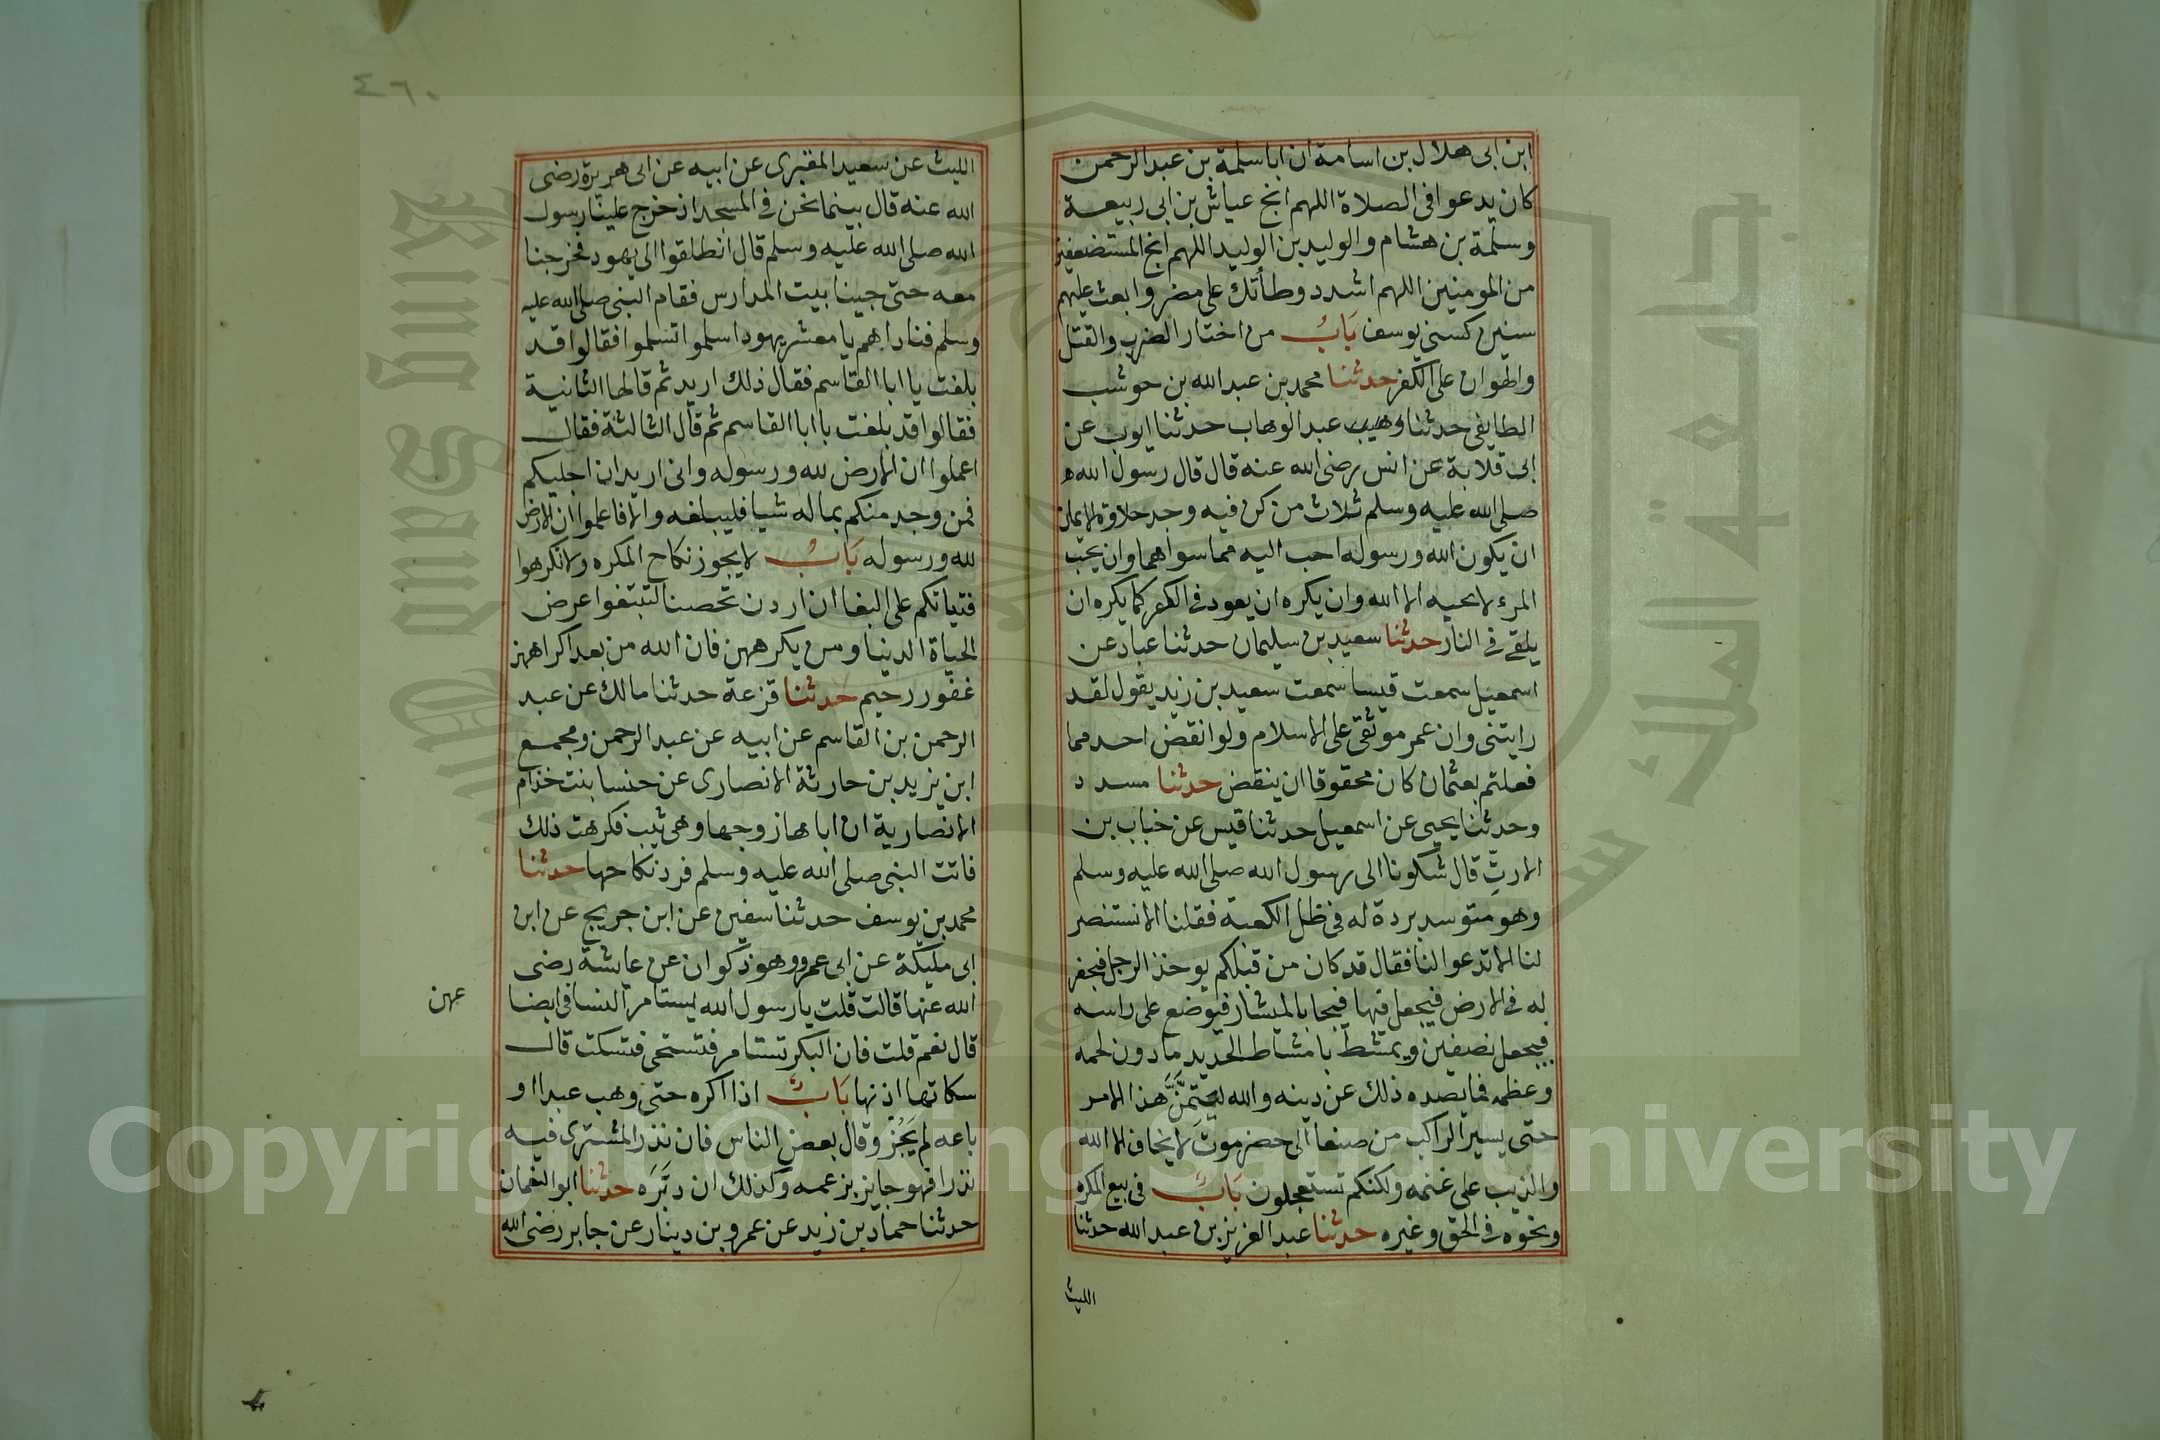 ابن ابى هلال بن اسامة ان اباسلمة بن عبد الرحمن
كان يدعوا فى الصلاة اللهم انج عياش بن ابى ربيعة
وسلمة بن هشام والوليد بن الوليد اللهم انج المستضعفين
من المومنين اللهم اشدد وطأتك على مضر وابعث عليهم
سنين كسنى يوسف بَابُ من اختار الضرب والقتل
والهوان على الكفر حدثنا محمد بن عبد الله بن حوشب
الطايفى حدثنا وهيب عبد الوهاب حدثنا ايوب عن
ابى قلابة عن انس رضى الله عنه قال قال رسول الله
صلى الله عليه وسلم ثلاث من كن فيه وجد حلاوة الايمان
ان يكون الله ورسوله احب اليه مما سواهما وان يحب
المرء لا يحبه الا الله وان يكره ان يعود فى الكفر كما يكره ان
يلقى فى النار حدثنا سعيد بن سليمان حدثنا عباد عن
اسمعيل سمعت قيسا سمعت سعيد بن زيد يقول لقد
رايتنى وان عمر موثقى على الاسلام ولو انقض احد مما
فعلتم بعثمان كان محقوقا ان ينقض حدثنا مسدد
وحدثنا يحيى عن اسمعيل حدثنا قيس عن خباب بن
الارتّ قال شكونا الى رسول الله صلى الله عليه وسلم
وهو متوسد بردة له فى ظل الكعبة فقلنا الا تستنصر
لنا الا تدعوا لنا فقال قد كان من قبلكم يوخذ الرجل فيحفر
له فى الارض فيجعل فيها فيجا بالميشار فيوضع على راسه
فيجعل نصفين ويمشط بامشاط الحديد مادون لحمه
وعظمه فما يصده ذلك عن دينه والله ليتمَّنَّ هذا الامر
حتى يسير الراكب من صنعا الى حضرموت لا يخاف الا الله
والذيب على غنمه ولكنكم تستعجلون بَابُ فى بيع المكره
ونحوه فى الحق وغيره حدثنا عبد العزيز بن عبد الله حدثنا
الليث
٤٦٠
الليث عن سعيد المقبرى عن ابيه عن ابى هريرة رضى
الله عنه قال بينما نحن فى المسجد اذ خرج علينا رسول
الله صلى الله عليه وسلم قال انطلقوا الى يهود فخرجنا
معه حتى جينا بيت المدارس فقام النبى صلى الله عليه
وسلم فناداهم يا معشر يهود اسلموا تسلموا فقالوا قد
بلغت يا ابا القاسم فقال ذلك اريد ثم قالها الثانية
فقالوا قد بلغت يا ابا القاسم ثم قال الثالثة فقال
اعملوا ان الارض لله ورسوله وانى اريد ان اجليكم
فمن وجد منكم بماله شيا فليبلغه والا فاعلموا ان الارض
لله ورسوله بَابُ لا يجوز نكاح المكره ولا تكرهوا
فتياتكم على البغا ان اردن تحصنا لتبتغوا عرض
الحياة الدنيا ومن يكرههن فان الله من بعد اكراههن
غفور رحيم حدثنا قزعة حدثنا مالك عن عبد
الرحمن بن القاسم عن ابيه عن عبد الرحمن ومجمع
ابن يزيد بن حارثة الانصارى عن خنسا بنت خذام
الانصارية ان اباها زوجها وهى ثيب فكرهت ذلك
فاتت النبى صلى الله عليه وسلم فرد نكاحها حدثنا
محمد بن يوسف حدثنا سفين عن ابن جريج عن ابن
ابى مليكة عن ابى عمرو وهو ذكوان عن عايشة رضى
الله عنها قالت قلت يا رسول الله يستامر النسا فى ابضا
عهن
قال نعم قلت فان البكر تستامر فتستحى فتسكت قال
سكاتها اذنها بَابُ اذا اكره حتى وهب عبدا او
باعه لم يَجُزْ وقال بعض الناس فان نذر المشترى فيه
نذرا فهو جايز بزعمه وكذلك ان دبَّرَه حدثنا ابو النعمان
حدثنا حماد بن زيد عن عمرو بن دينار عن جابر رضى الله
جامعة الملك سعود
King Saud University
Copyright © King Saud University